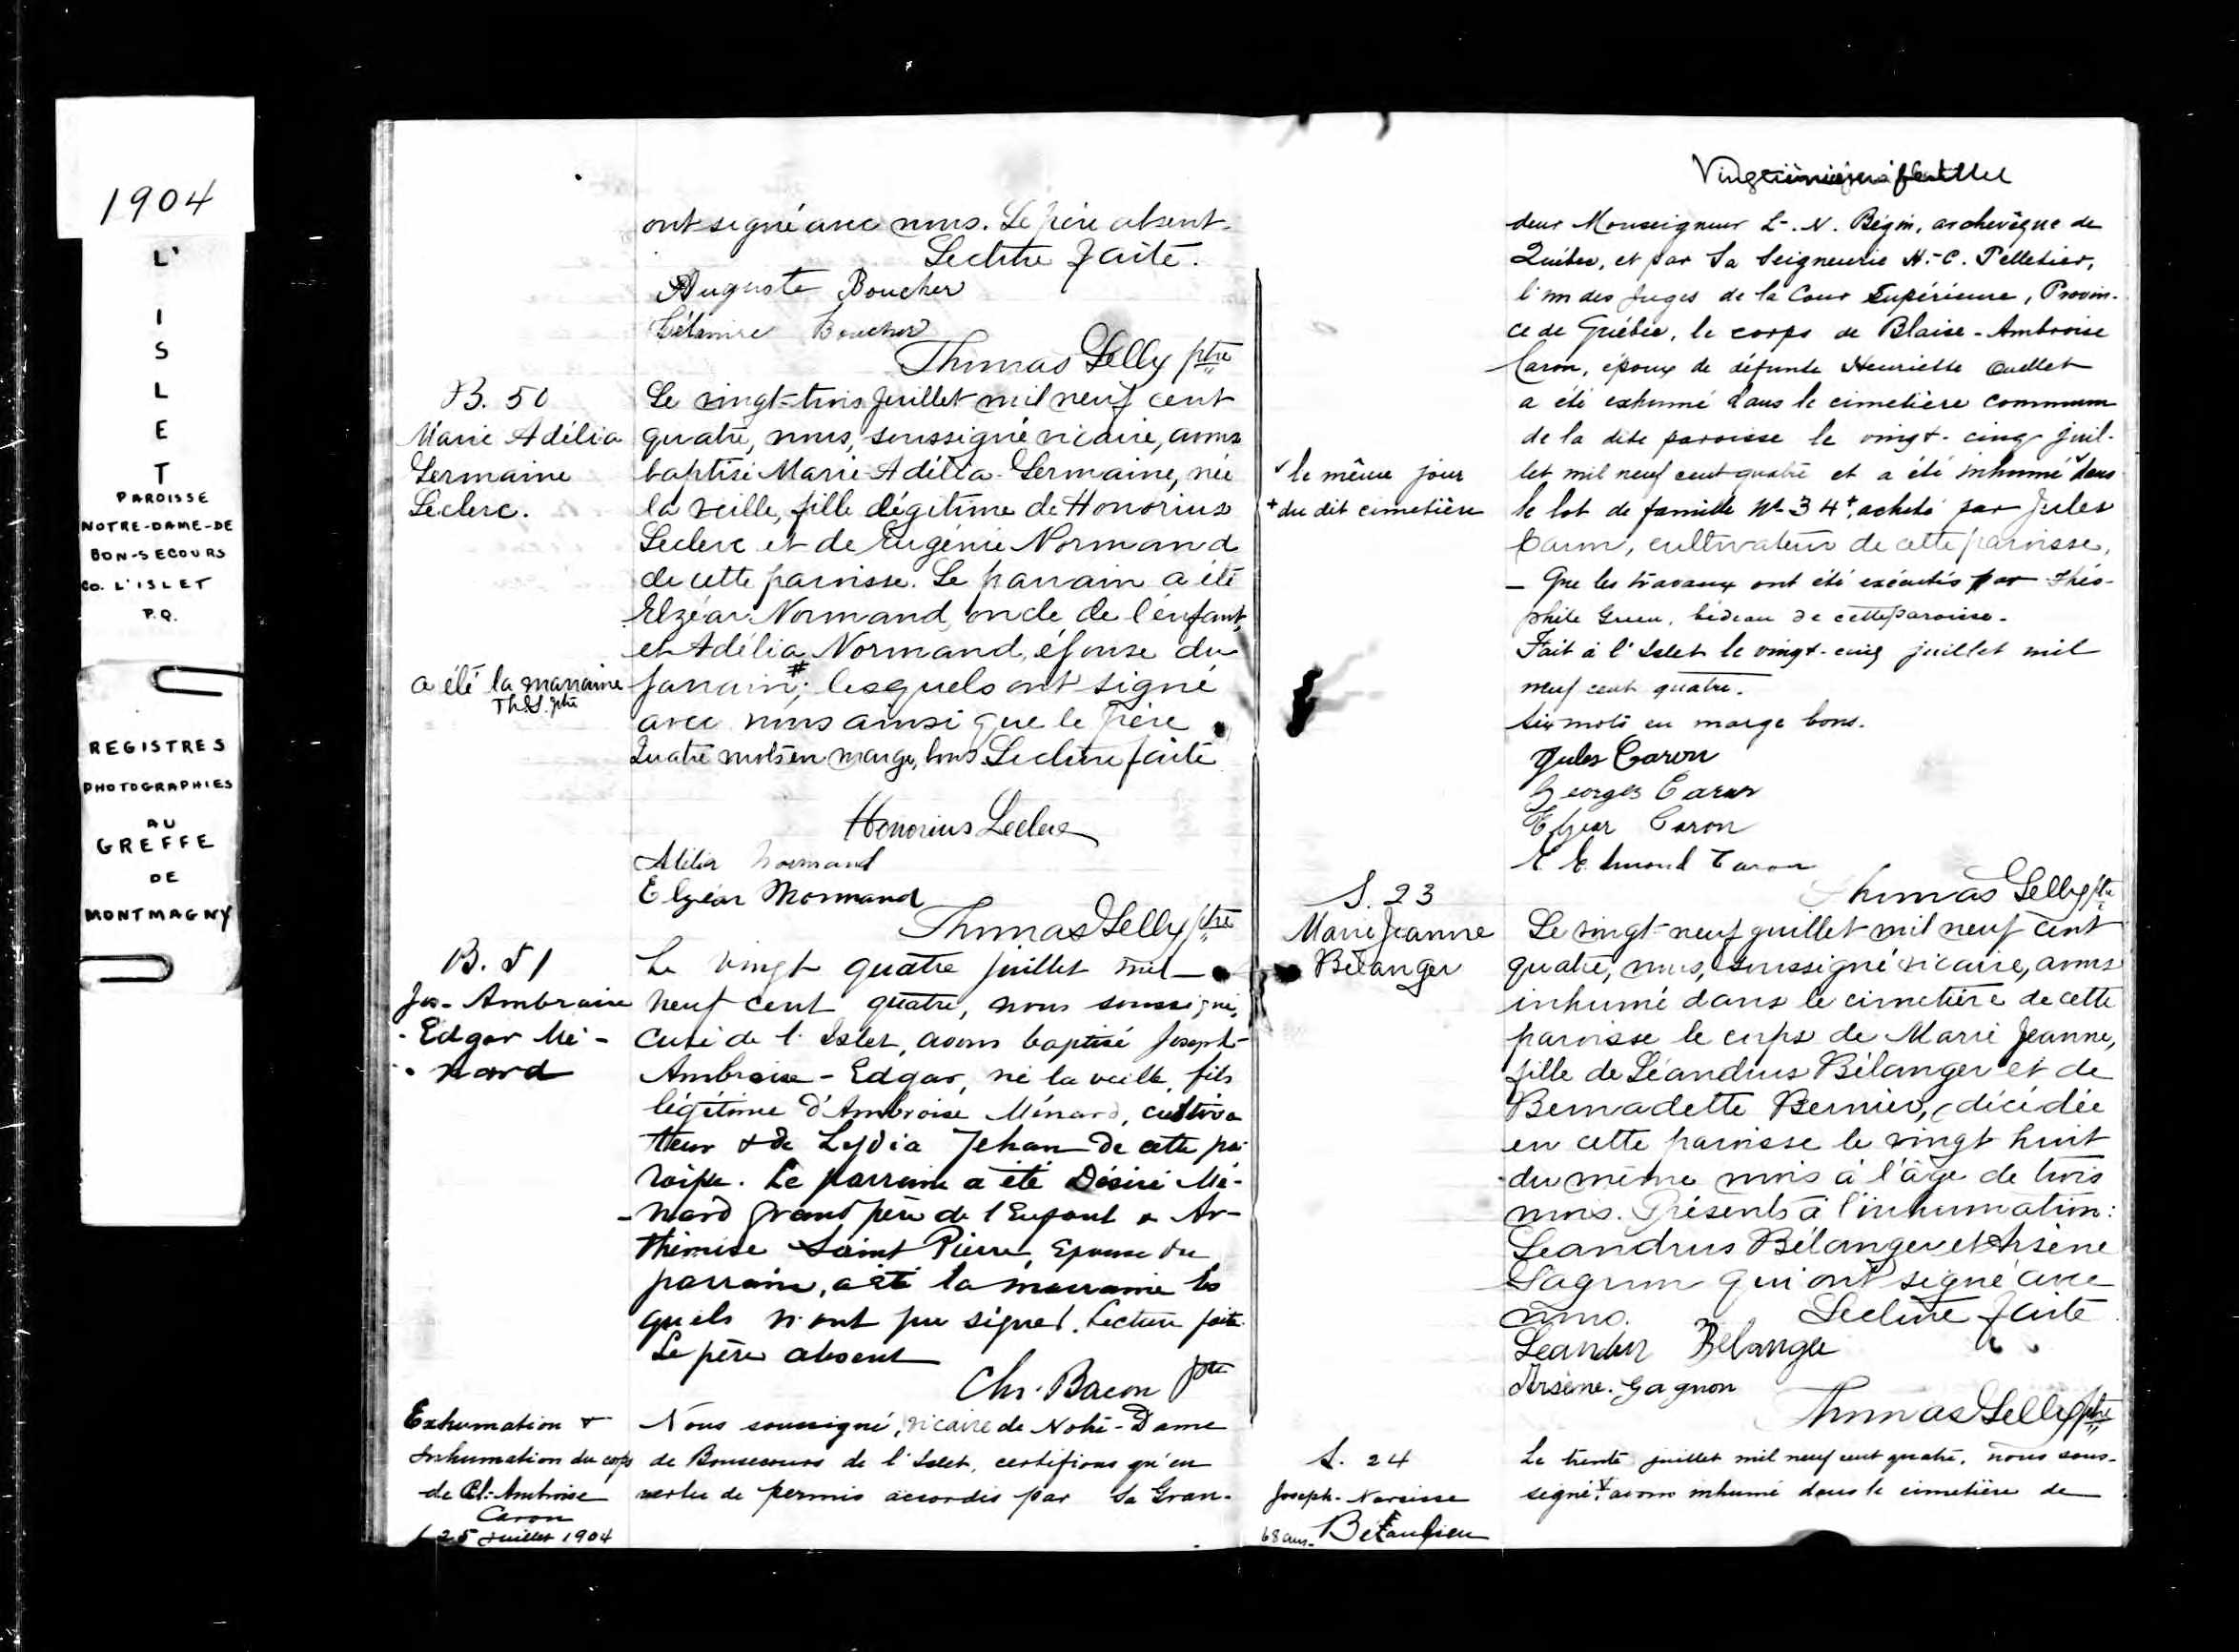 1904
L'
I
S
L
E
T
PAROISSE
NOTRE-DAME-DE
BON-SECOURS
CO. L'ISLET
P.Q.
REGISTRES
PHOTOGRAPHIES
AU
GREFFE
DE
MONTMAGNY
ont signé avec nous. Le père absent.
Lecture faite.
Auguste Boucher
Boucher
Thomas Pelly ptre
B. 50
Marie Adélia
Germaine
Leclerc.
Le vingt-trois juillet mil neuf cent
quatre, nous, soussigné vicaire, avons
baptisé Marie-Adélia-Germaine, née
la veille, fille légitime de Honorius
Leclerc et de Eugénie Normand
de cette paroisse. Le parrain a été
Elzéar Normand, oncle de l'enfant,
et Adélia Normand, épouse du
a été la marraine
parrain #; lesquels ont signé
avec nous ainsi que le père.
Quatre mots en marge, bons. Lecture faite
Honorius Leclerc
Adélia Normand
Elzéar Normand
Thomas Pelly ptre
B. 51
Jos-Ambroise
Edgar Mé-
nard
Le vingt quatre juillet mil
neuf cent quatre, nous soussigné,
Curé de l'Islet, avons baptisé Joseph-
Ambroise-Edgar, né la veille, fils
légitime d'Ambroise Ménard, cultiva
teur & de Lydia Jehan de cette pa
roisse. Le parrain a été Désiré Mé-
nard grand père de l'Enfant & Ar-
thémise Saint Pierre, Epouse du
parrain, a été la marraine les
quels n'ont pu signer. Lecture faite.
Le père absent
Chs. Bacon ptre
Exhumation &
Inhumation du corps
de Bl.-Ambroise
Caron
25 Juillet 1904
Nous soussigné, vicaire de Notre-Dame
de Bonsecours de l'Islet, certifions qu'en
vertu de permis accordés par Sa Gran-
Vingtième feuillet
deur Monseigneur L.-N. Bégin, archevêque de
Québec, et par Sa Seigneurie H.-C. Pelletier,
l'un des Juges de la Cour Supérieure, Provin-
ce de Québec, le corps de Blaise-Ambroise
Caron, époux de défunte Henriette Ouellet
a été exhumé dans le cimetière commun
de la dite paroisse le vingt-cinq juil-
✓ le même jour
let mil neuf cent quatre et a été inhumé ✓ dans
+ du dit cimetière
le lot de famille No 34 +, acheté par Jules
Caron, cultivateur de cette paroisse,
- Que les travaux ont été exécutés par Théo-
phile, bédeau de cette paroisse.
Fait à l'Islet le vingt-cinq juillet mil
neuf cent quatre.
Six mots en marge bons.
Jules Caron
Georges Caron
Elzéar Caron
Edmond Caron
Thomas Pelly ptre
S. 23
Marie Jeanne
Bélanger
Le vingt-neuf juillet mil neuf cent
quatre, nous, soussigné vicaire, avons
inhumé dans le cimetière de cette
paroisse le corps de Marie Jeanne,
fille de Léandrus Bélanger et de
Bernadette Bernier, décédée
en cette paroisse le vingt huit
du même mois à l'âge de trois
mois. Présents à l'inhumation:
Léandrus Bélanger et Arsène
Gagnon qui ont signé avec
nous. Lecture faite.
Bélanger
Arsène Gagnon
Thomas Pelly ptre
S. 24
Joseph-Narcisse
68 ans
Le trente juillet mil neuf cent quatre, nous sous-
signé, avons inhumé dans le cimetière de